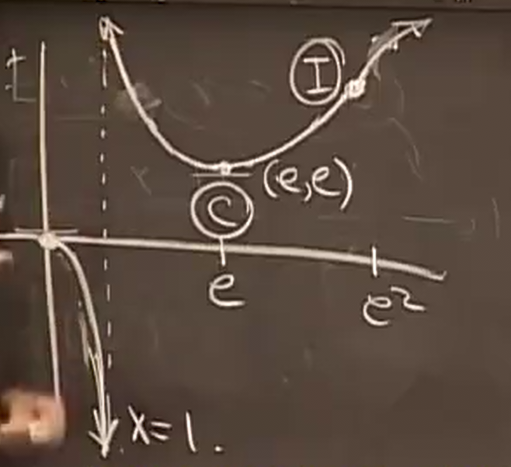 I
(e,e)
C
e
e²
x=1.